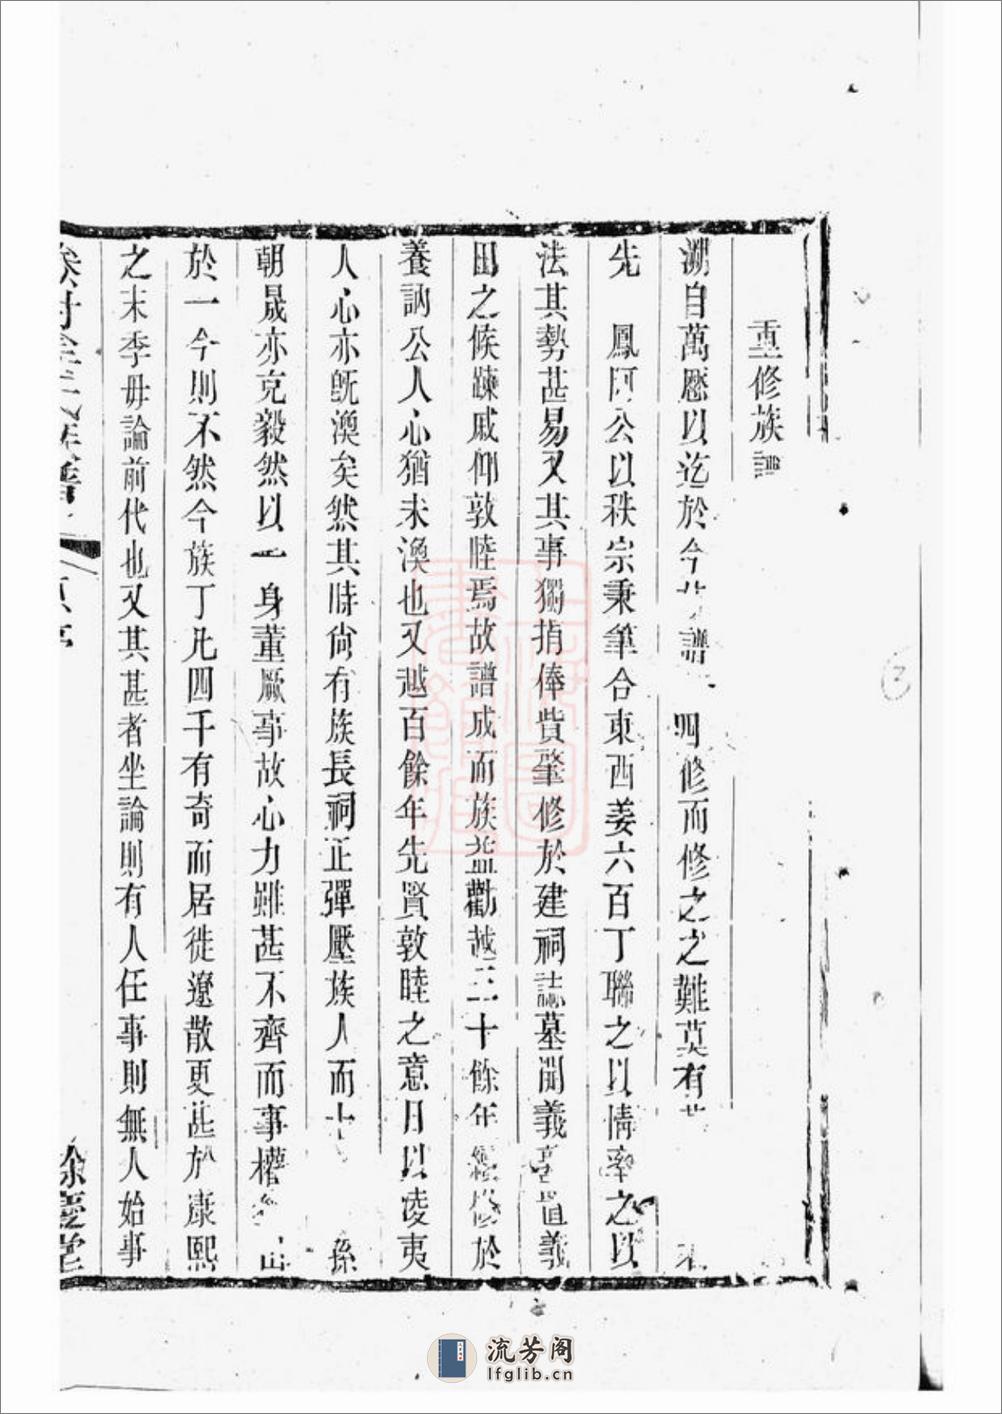 重修族譜
溯自萬厯以迄於今譜四修而修之之難莫有
先　鳳阿公以秩宗秉筆合東西姜六百丁聯之以情率之以
法其勢甚易又其事獨捐俸貲肇修於建祠誌墓開義置義
田之候踈戚仰敦睦焉故譜成而族益勸越三十餘年繼修於
養訥公人心猶未渙也又越百餘年先賢敦睦之意日以凌夷
人心亦旣渙矣然其時尙有族長祠正彈壓族人而十孫
朝晟亦克毅然以一身董厥事故心力雖甚不齊而事權出
於一今則不然今族丁凡四千有奇而居徙遼散更甚於康熙
之末季毋論前代也又其甚者坐論則有人任事則無人始事
餘慶堂
流芳阁
lfglib.cn